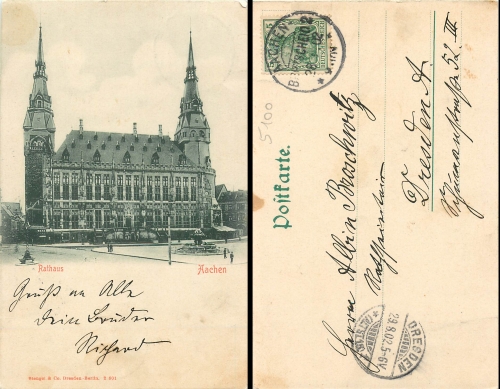 Rathaus
Aachen
Gruß an Alle
Dein Bruder
Richard
Stengel & Co. Dresden-Berlin. D 601
Postkarte.
5100
AACHEN
Herrn Albin Buschwitz
Dresden A.
52 III
DRESDEN
29.8.02.5-6V